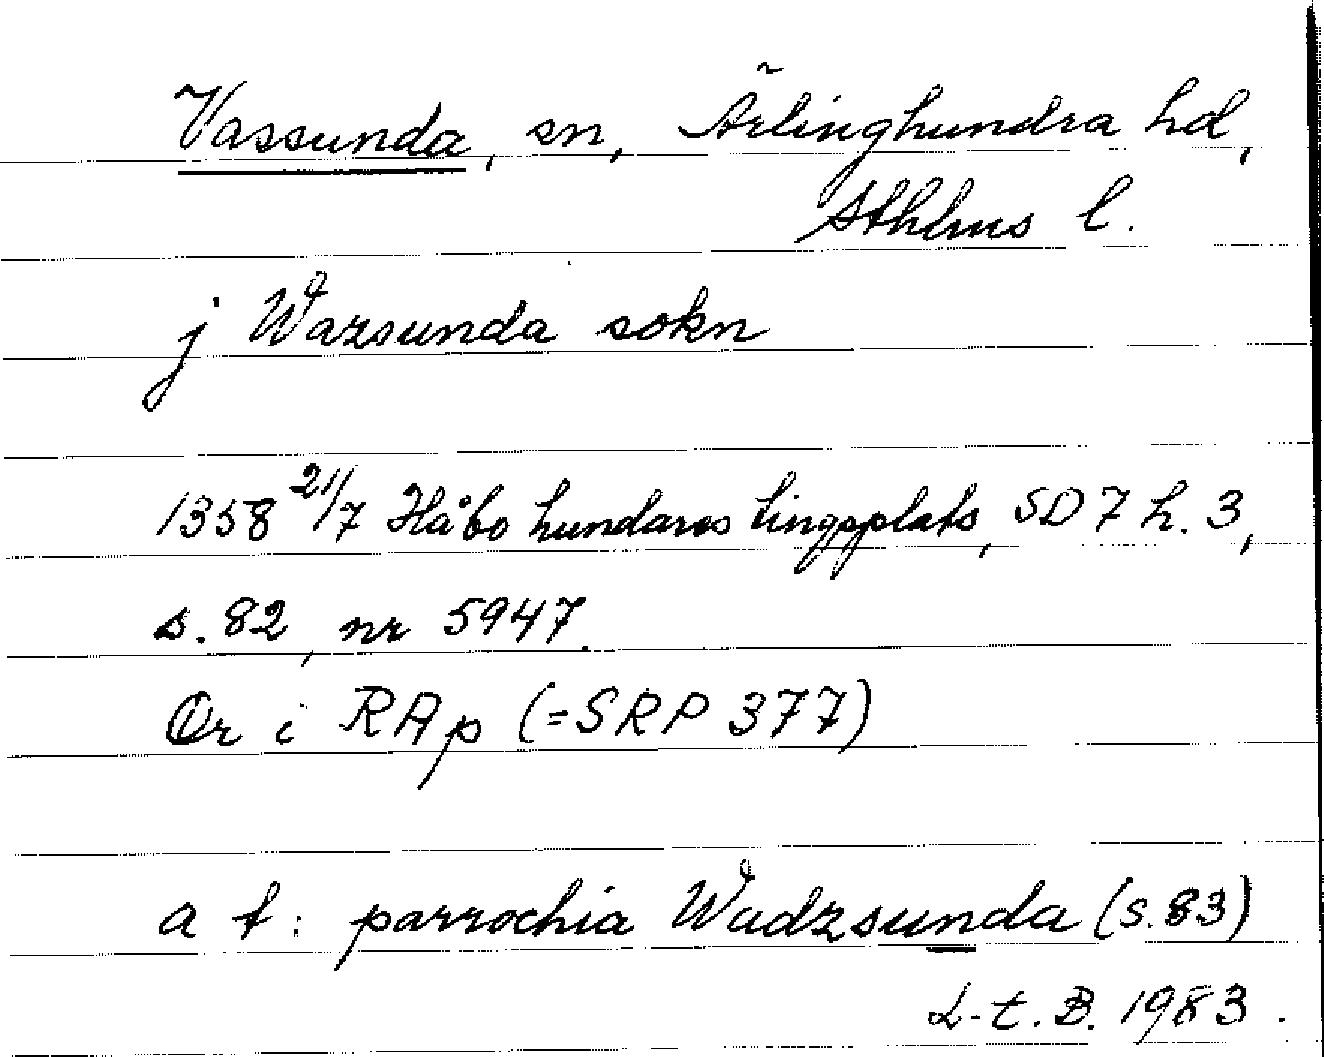 Vassunda, sn, Ärlinghundra hd,
Sthlms l.
j Wazsunda sokn
1358 21/7 Håbo hundares tingsplats, SD 7 h. 3,
s. 82, nr 5947.
Or i RAp (=SRP 377)
a t: parrochia Wadzsunda (s. 83)
L-E.B. 1983.